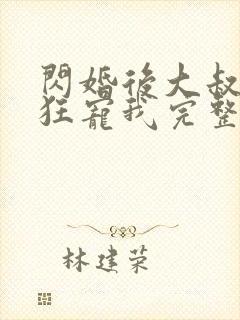 閃婚後大叔
狂寵我完整
林建荣